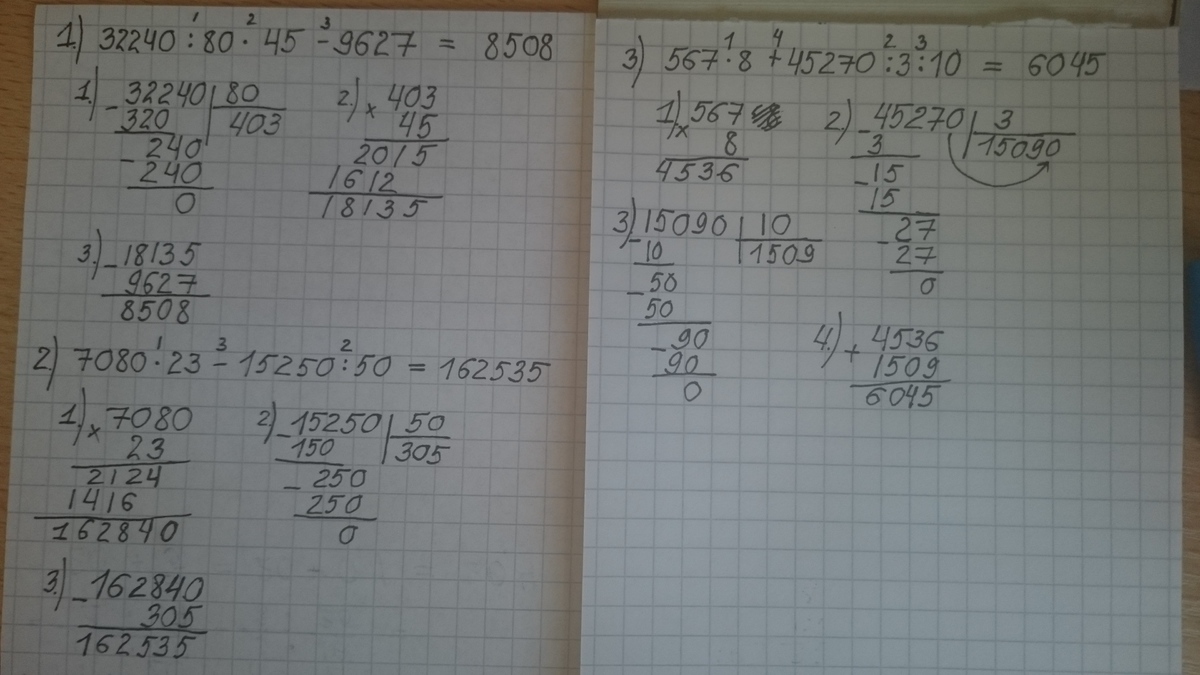 1.) 32240 : 80 · 45 - 9627 = 8508
1 2 3
1.) - 32240 | 80
320 403
- 240
240
0
2.) × 403
45
2015
1612
18135
3.) - 18135
9627
8508
2.) 7080 · 23 - 15250 : 50 = 162535
1 3 2
1.) × 7080
23
2124
1416
162840
2.) - 15250 | 50
150 305
- 250
250
0
3.) - 162840
305
162535
3) 567 · 8 + 45270 : 3 : 10 = 6045
1 4 2 3
1) × 567
8
4536
2) - 45270 | 3
3 15090
- 15
15
- 27
27
0
3) - 15090 | 10
10 1509
- 50
50
- 90
90
0
4.) + 4536
1509
6045